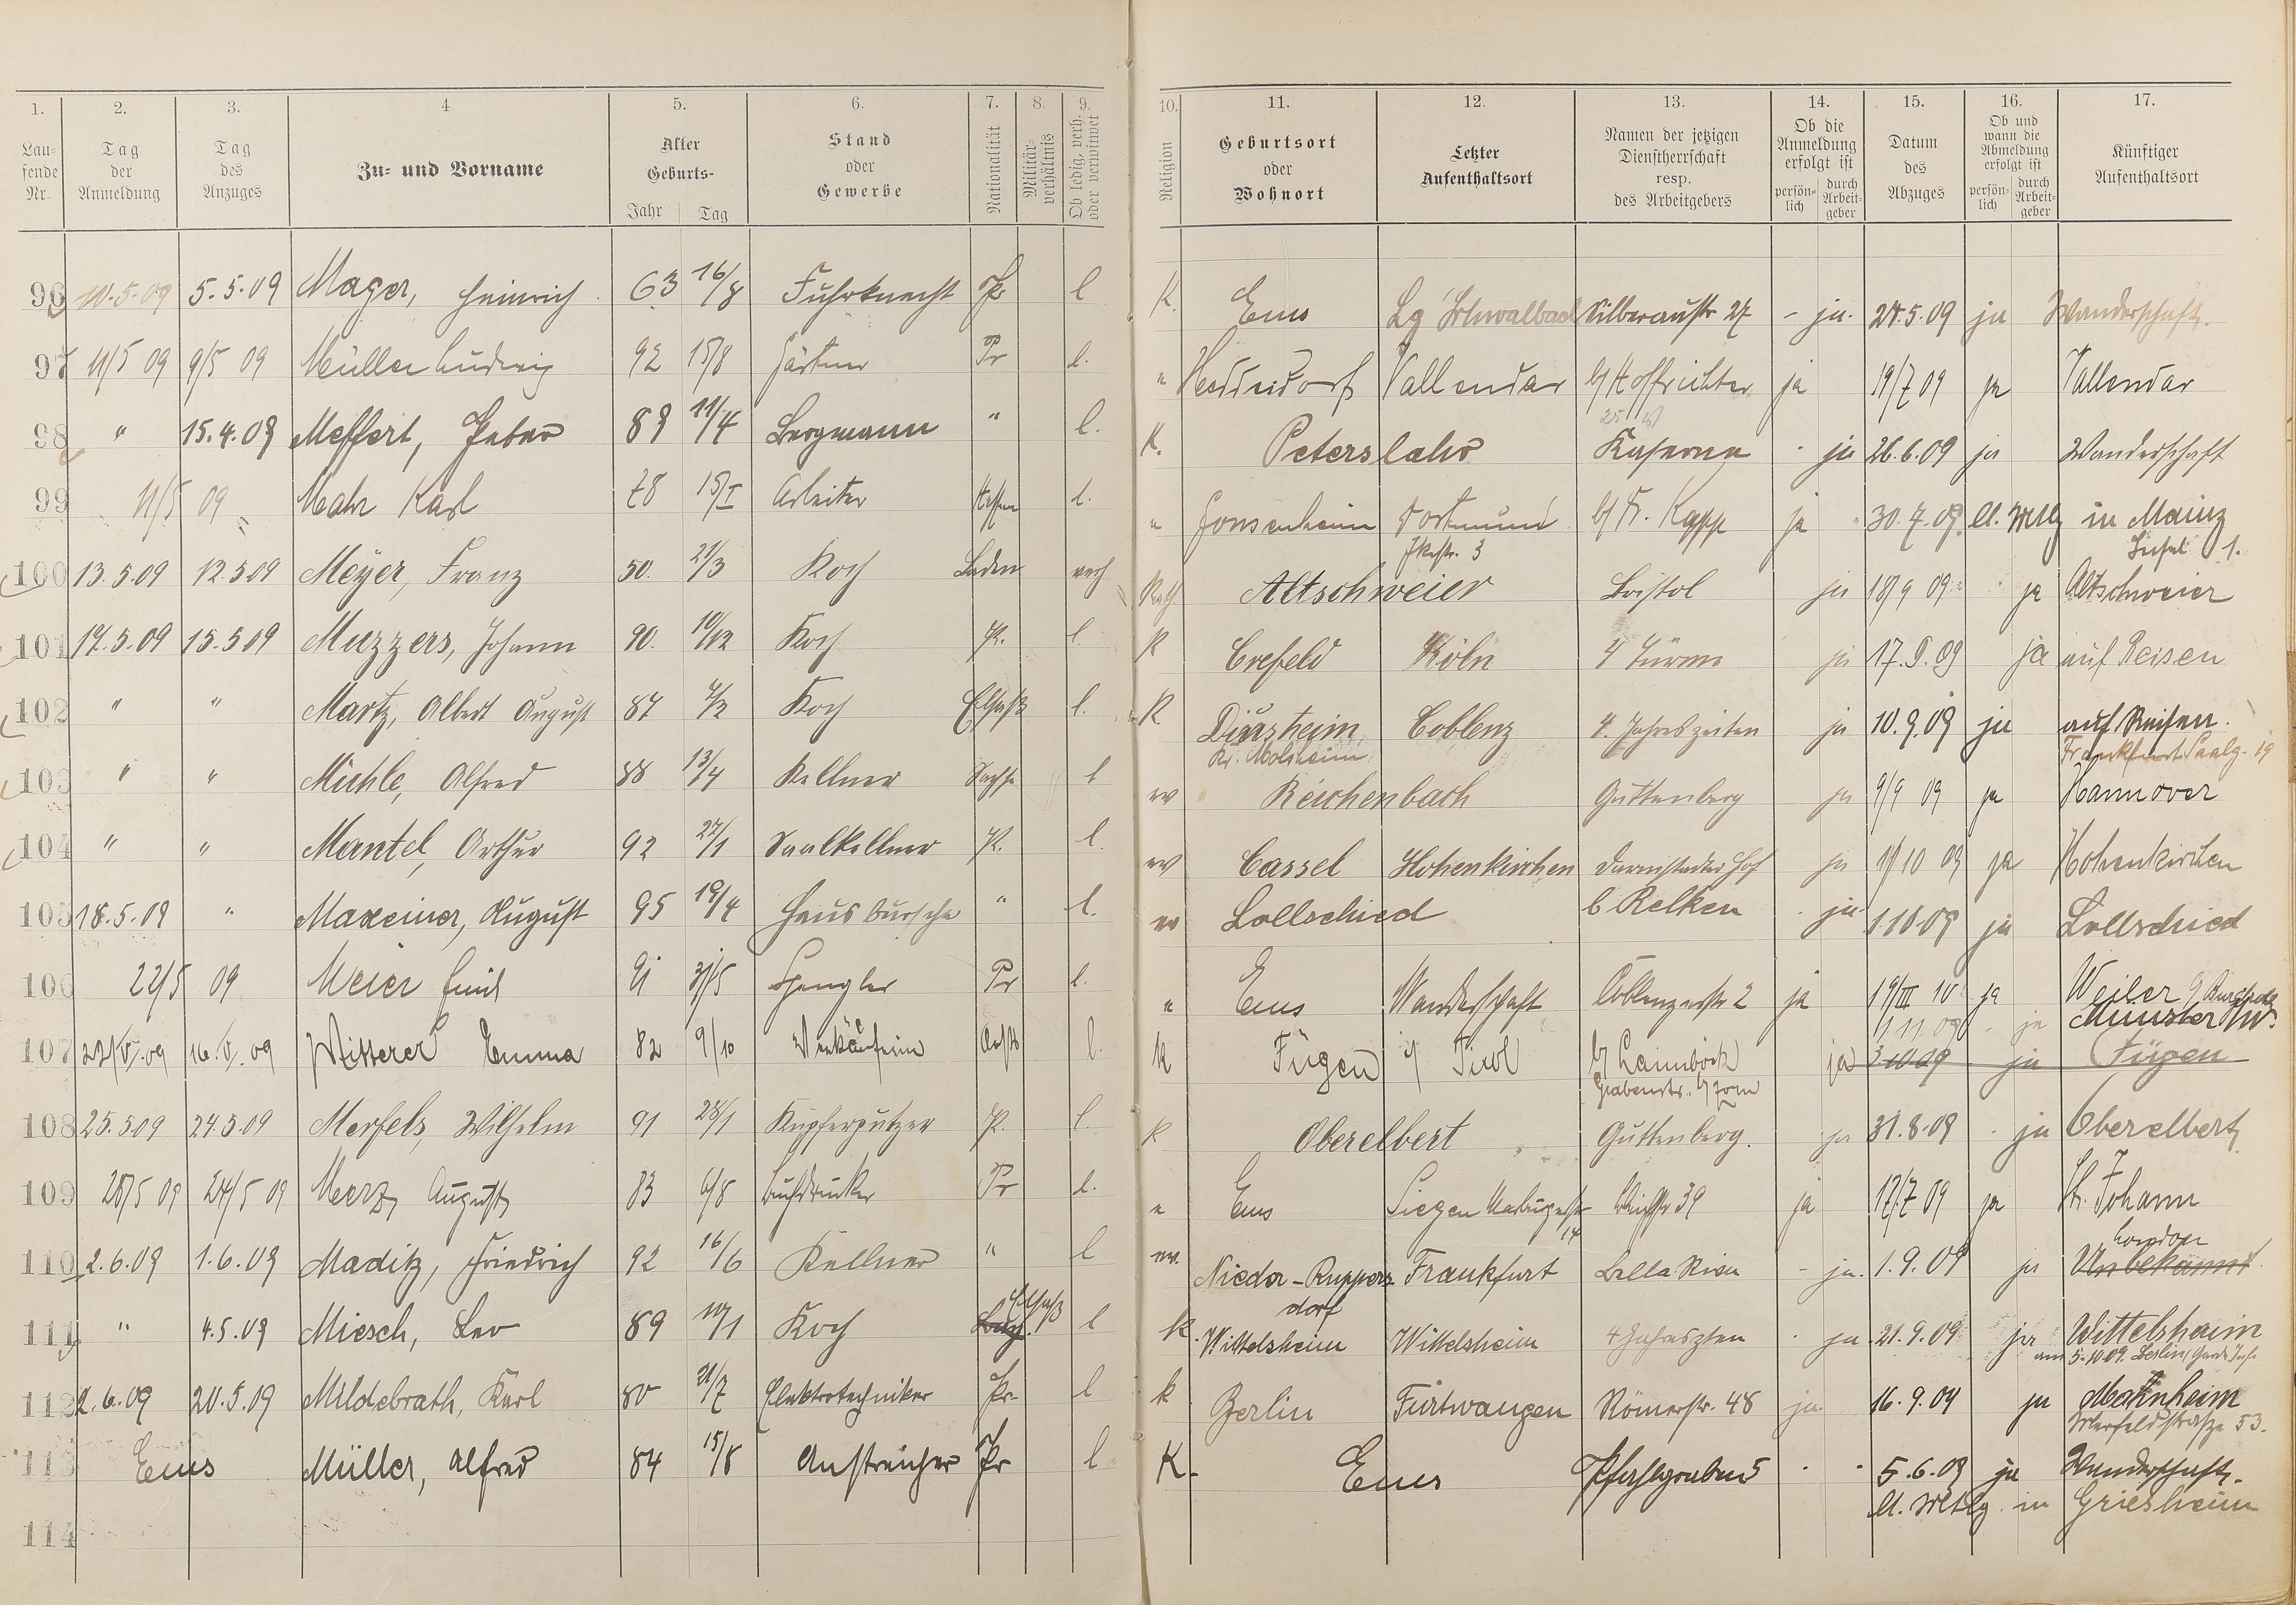 1. 2. 3. 4. 5. 6. 7. 8. 9. 10. 11. 12. 13. 14. 15. 16. 17.
Lau-fende Nr. Tag der Anmeldung Tag des Anzuges Zu- und Vorname Alter Geburts- Jahr Tag Stand oder Gewerbe Nationalität Militär-verhältnis Ob ledig, verh. oder verwitwet Religion Geburtsort oder Wohnort Letzter Aufenthaltsort Namen der jetzigen Dienstherrschaft resp. des Arbeitgebers Ob die Anmeldung erfolgt ist persön-lich durch Arbeit-geber Datum des Abzuges Ob und wann die Abmeldung erfolgt ist persön-lich durch Arbeit-geber Künftiger Aufenthaltsort
96 10.5.09 5.5.09 Mager, Heinrich 63 16/8 Fuhrknecht Pr l K. Ems Lg Schwalbach Silberaustr 27 - ja. 24.5.09 ja Wanderschaft.
97 11/5 09 9/5 09 Müller Ludwig 92 15/8 Gärtner Pr l. " Heddesdorf Vallendar b/ Hoffrichter ja 19/7 09 ja Vallendar
98 " 15.4.09 Meffert, Peter 89 11/4 Bergmann " l. K. Peterslahr Kaserne - ja 26.6.09 ja Wanderschaft
99 11/5 09 Mahr Karl 78 15/I Arbeiter Hessen l. " Gonsenheim Dortmund b/ Fr. Kapp ja 30.7.09 lt. Mttlg in Mainz
Insel 1.
100 13.5.09 12.5.09 Meyer, Franz 50. 21/3 Koch Baden verh Kath Altschweier Bristol ja 18/9 09 ja Altschweier
101 14.5.09 15.5.09 Muzzers, Johann 90. 10/12 Koch Pr. l. K Crefeld Köln 4 Türme ja 17.9.09 ja auf Reisen
102 " " Martz, Albert August 87 7/2 Koch Elsaß l. K Dinzheim Coblenz 4. Jahreszeiten ja 10.9.09 ja auf Reisen.
Kr. Molsheim Frankfurt Saalg. 19
103 " " Michle, Alfred 88 13/4 Kellner Sachse l ev Reichenbach Guttenberg ja 9/9 09 ja Hannover
104 " " Mantel, Arthur 92 27/1 Saalkellner Pr. l. ev Cassel Hohenkirchen Darmstädter Hof ja 11/10 09 ja Hohenkirchen
105 18.5.09 " Maxeiner, August 95 19/4 Hausbursche " l. ev Lollschied b Relken - ja 1.10.09 ja Lollschied
106 22/5 09 Meier Emil 91 31/5 Spengler Pr l. " Ems Wanderschaft Coblenzerstr 2 ja 19/III 10 ja Weiler
1/11 09 - ja Münster /W.
107 22/V.09 16.V.09 Mitterer Emma 82 9/10 Verkäuferin l. K Fügen i/ Tirol b/ Laimböck ja 3.10.09 ja Fügen
Grabenstr.
108 25.5.09 24.5.09 Merfels, Wilhelm 91 28/1 Kupferputzer Pr. l. K Oberelbert Guttenberg. ja 31.8.09 - ja Oberelbert
109 28/5 09 24/5 09 Merz, August 83 6/8 Buchdrucker Pr l. " Ems Siegen Marburgerstr 14 39 ja 17/7 09 ja St. Johann
110 2.6.09 1.6.09 Maditz, Friedrich 92 16/6 Kellner " l ev. Nieder-Ruppersdorf Frankfurt Bella Riva - ja. 1.9.09 ja Unbekannt London
111 " 4.5.09 Miesch, Leo 89 10/1 Koch Elsaß l K. Wittelsheim Wittelsheim 4 Jahreszten - ja 21.9.09 ja Wittelsheim
am 5.10.09. Berlin
112 2.6.09 20.5.09 Mildebrath, Karl 80 21/7 Elektrotechniker Pr. l K Berlin Furtwangen Römerstr. 48 ja 16.9.09 ja Mannheim
Merfeldstraße 53.
113 Ems Müller, Alfred 84 15/8 Anstreicher Pr l K. Ems Pfahlgraben 5 - - 5.6.09 ja Wanderschaft.
lt. Mttlg. in Griesheim
114